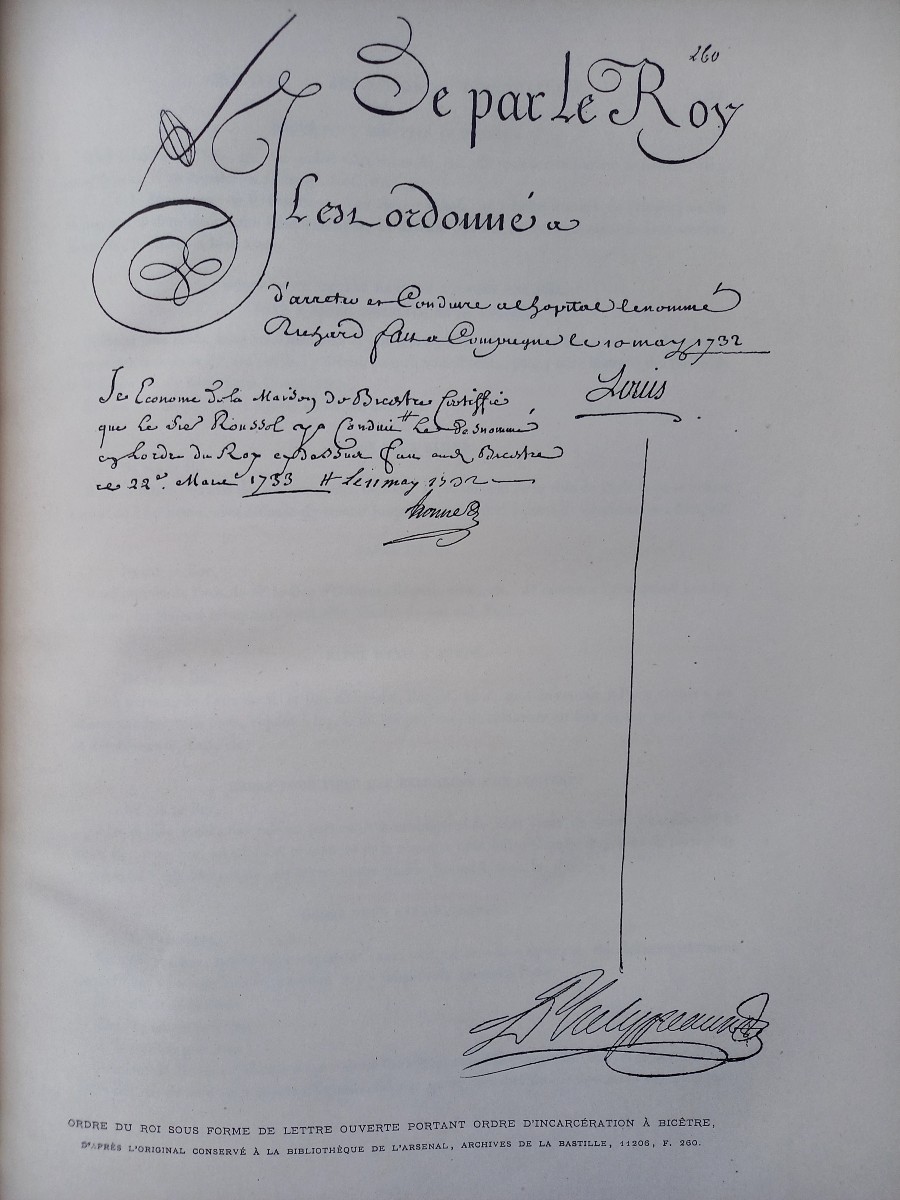 260
De par le Roy
Il est ordonné a
d'arreter et Conduire a lhopital le nommé
Richard fait a Compiegne le 10 may 1732
Louis
Je Econome de la Maison de Bicestre Certiffie
que le sieur Roussel a Conduit # le
lordre du Roy fait aud. Bicestre
ce 22e. 1733 # le 11 may 1732
Phelypeaux
ORDRE DU ROI SOUS FORME DE LETTRE OUVERTE PORTANT ORDRE D'INCARCÉRATION À BICÊTRE,
D'APRÈS L'ORIGINAL CONSERVÉ À LA BIBLIOTHÈQUE DE L'ARSENAL, ARCHIVES DE LA BASTILLE, 11206, F. 260.